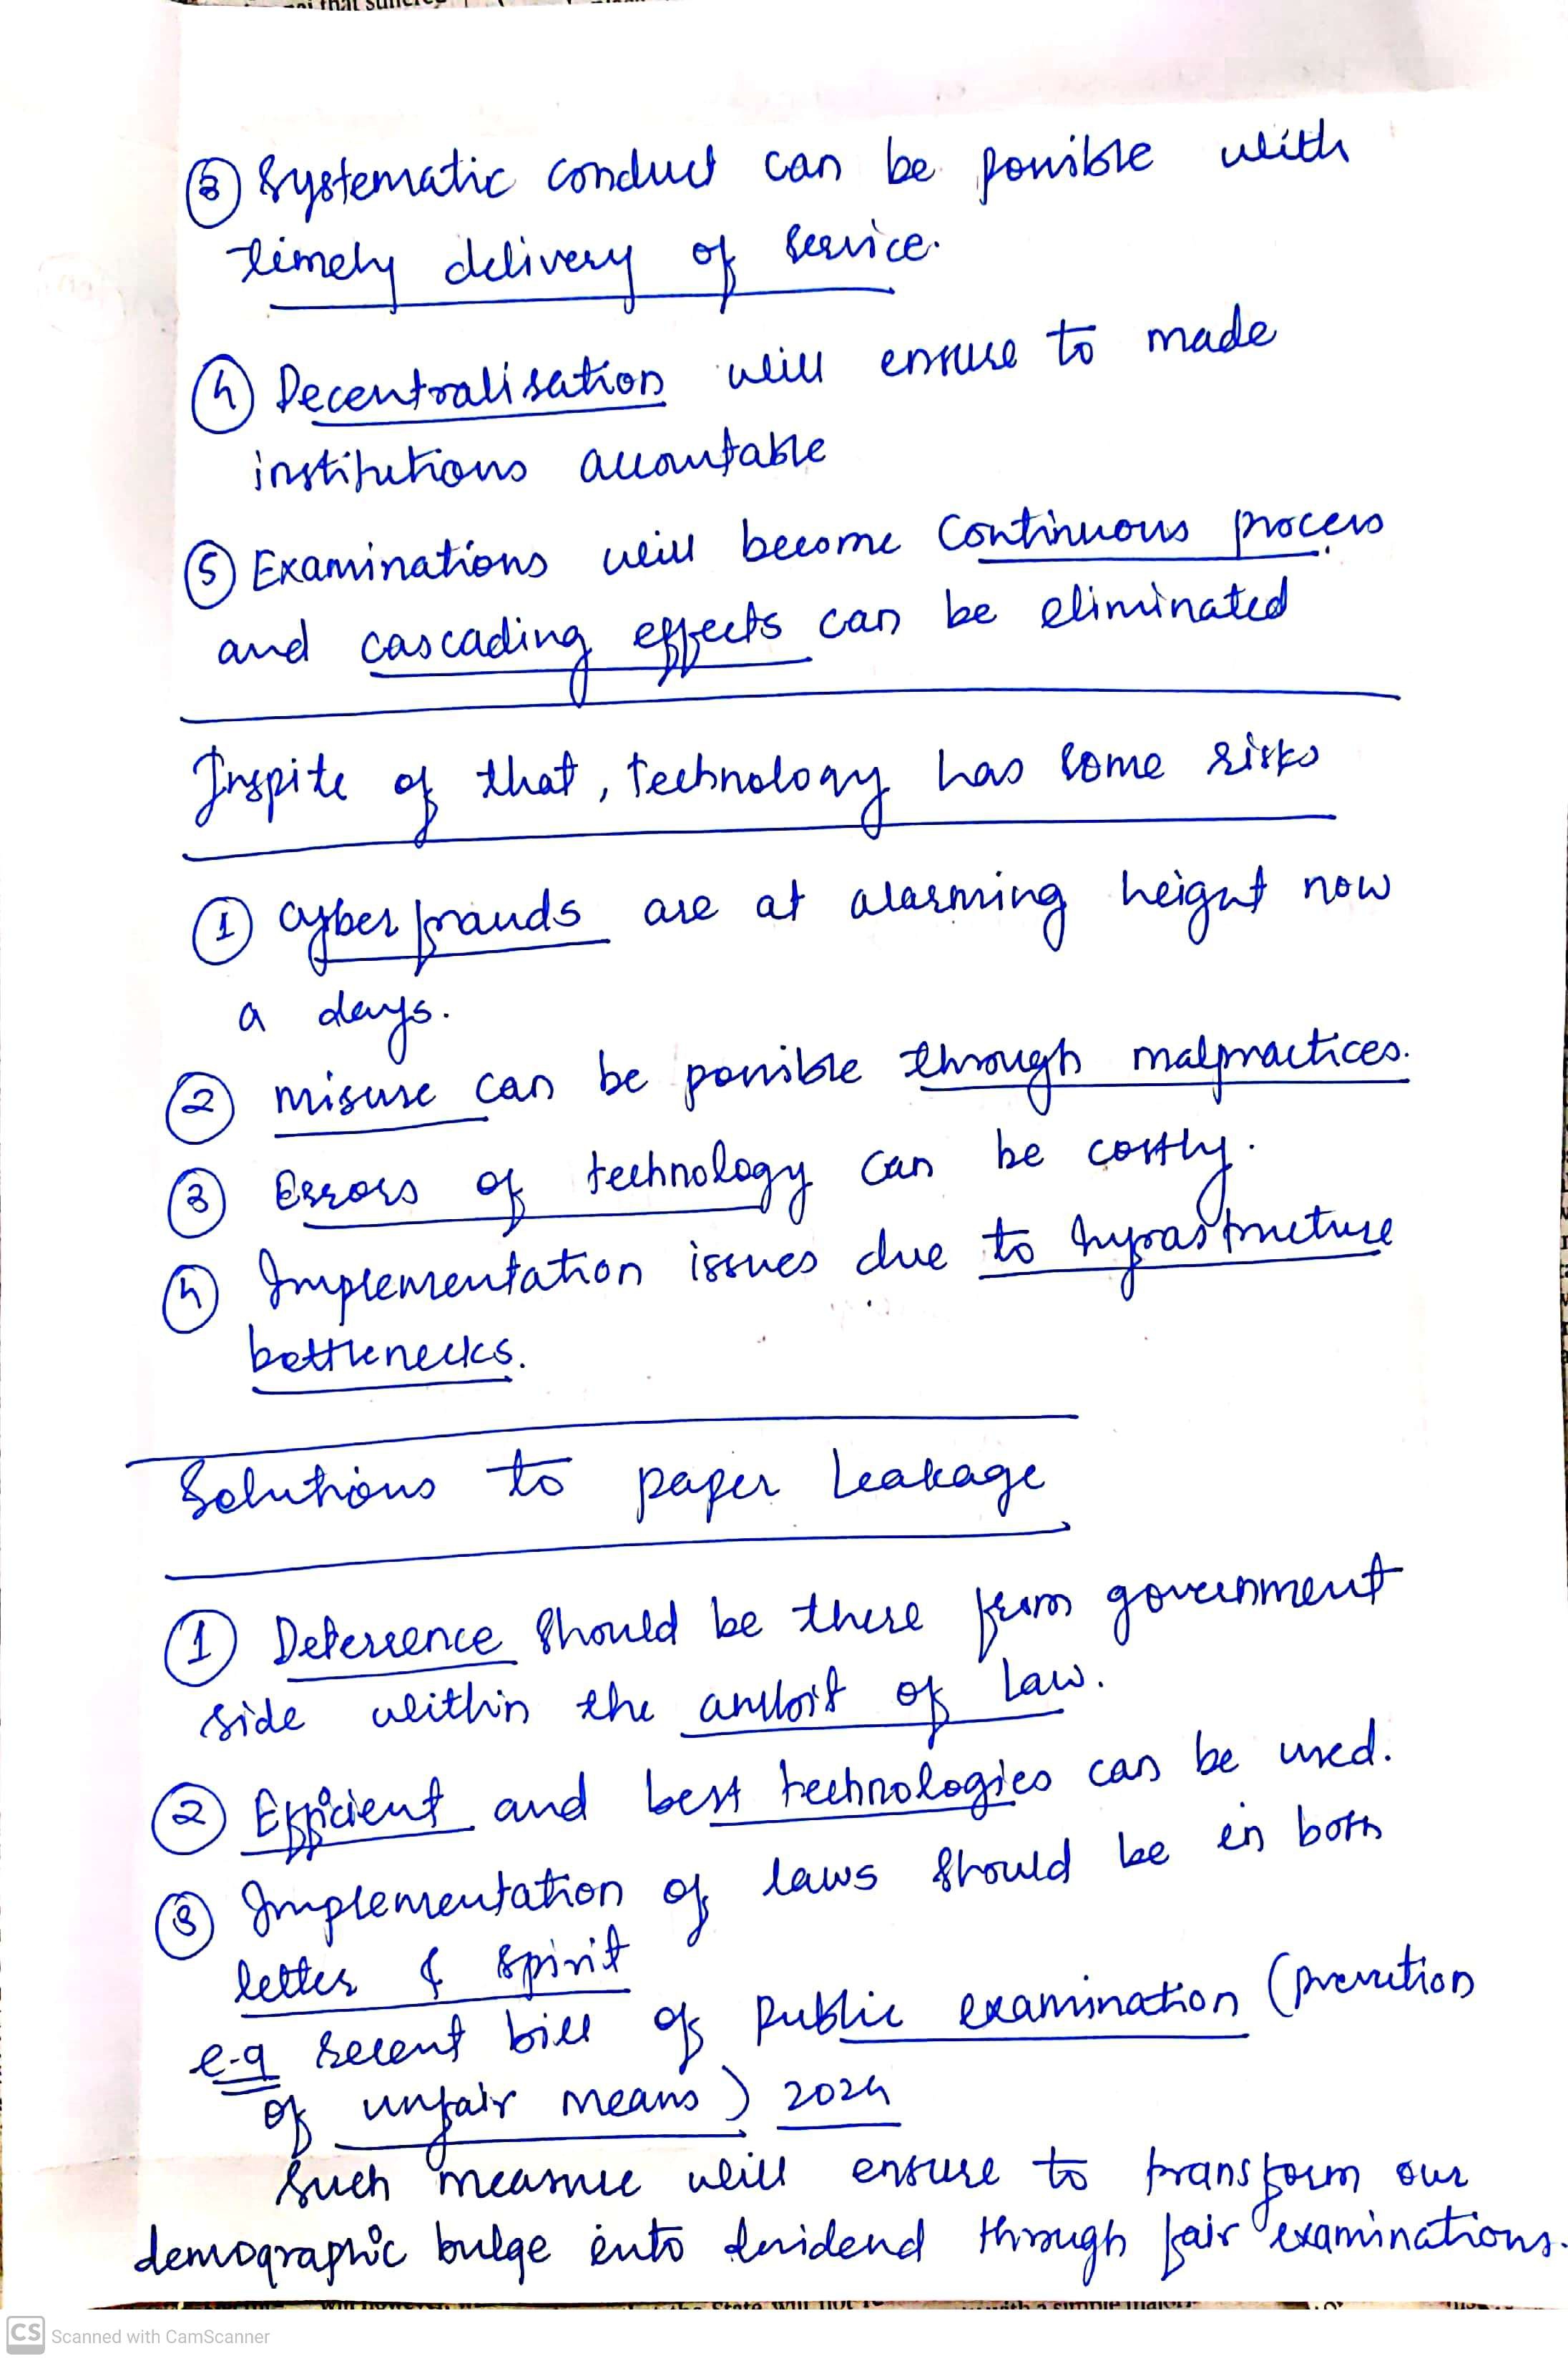 ③ Systematic conduct can be possible with
timely delivery of service.
④ Decentralisation will ensure to made
institutions accountable
⑤ Examinations will become Continuous process
and cascading effects can be eliminated
Inspite of that, technology has some risks
① Cyber frauds are at alarming height now
a days.
② misuse can be possible through malpractices.
③ Errors of technology can be costly.
④ Implementation issues due to Infrastructure
bottlenecks.
Solutions to paper leakage
① Deterrence should be there from government
side within the ambit of law.
② Efficient and best technologies can be used.
③ Implementation of laws should be in both
letter & spirit
e.g recent bill of Public examination (prevention
of unfair means) 2024
such measure will ensure to transform our
demographic bulge into dividend through fair examinations.
CS Scanned with CamScanner